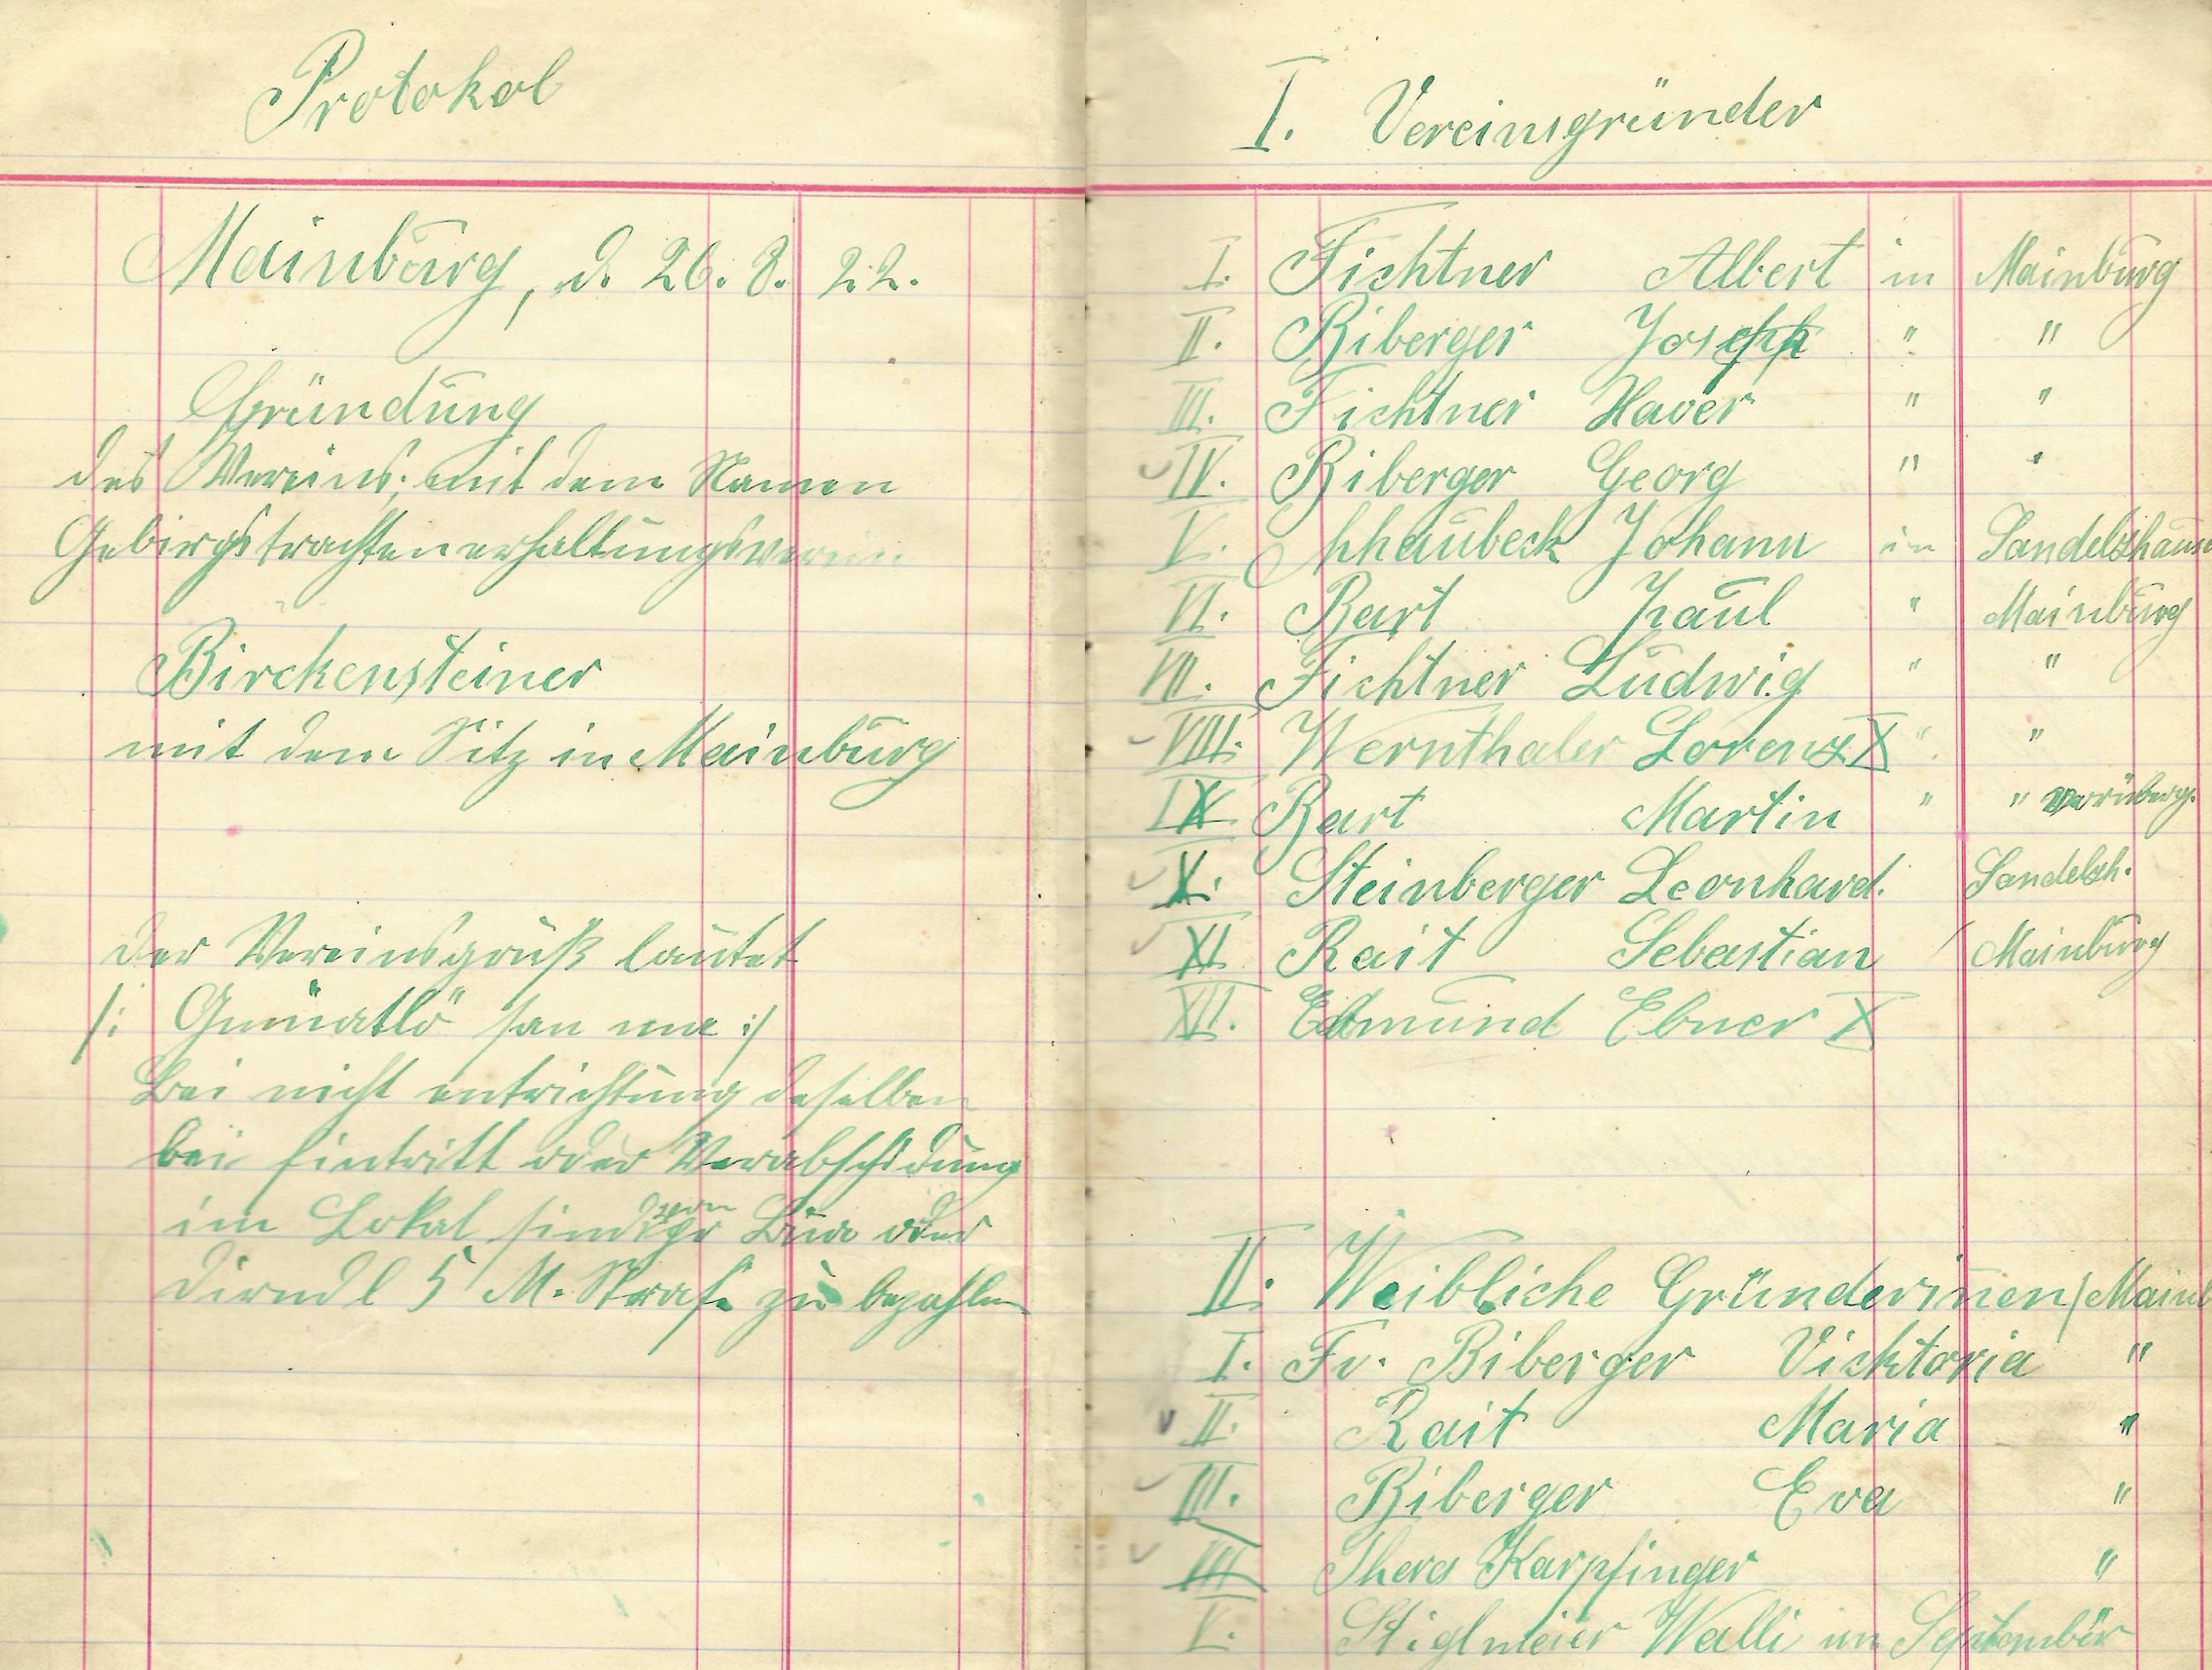 Protokol
Mainburg, d. 26. 8. 22.
Gründung
des Vereins; mit dem Namen
Gebirgstrachtenerhaltungsverein
Birckensteiner
mit dem Sitz in Mainburg
der Vereinsgruß lautet
/: Gmüatlö" san ma :/
Bei nicht entrichtung deselben
bei Eintritt oder Verabschidung
im Lokal sind Bua oder
Dirndl 5 M. Straf. zu bezahlen
I. Vereinsgründer
I. Fichtner Albert in Mainburg
II. Biberger Joseph " "
III. Fichtner Xaver " "
IV. Biberger Georg " "
V. Johann in Sandelshausen
VI. Bart Paul " Mainburg
VII. Fichtner Ludwig " "
VIII. Wernthaler Lorenz X " "
IX Bart Martin " "
X. Steinberger Leonhard. Sandelsh.
XI Rait Sebastian / Mainburg
XII. Edmund Ebner X
II. Weibliche Gründerinen / Mainb
I. Fr. Biberger Vicktoria "
II. Rait Maria "
III. Biberger Eva "
III Theres Karpfinger "
V. Stiglmeier Walli im September